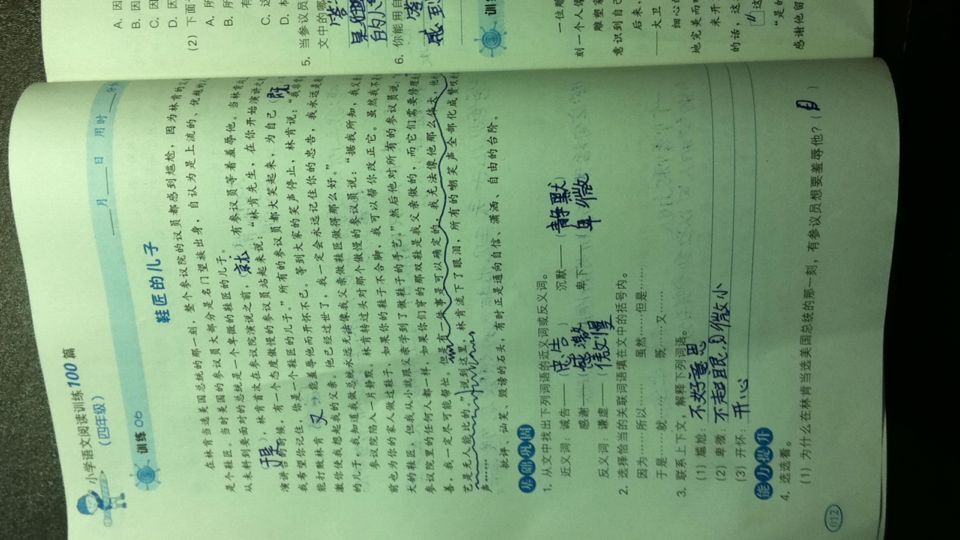 小学语文阅读训练100篇
(四年级)
训练
月 日 用时
鞋匠的儿子
在林肯当选美国总统的那一刻,整个参议院的议员都感到尴尬,因为林肯的
是个鞋匠。当时美国的参议员大部分是名门望族出身,自认为是上流的、优越的
从未料到要面对的总统是一个卑微的鞋匠的儿子。
林肯首次在参议院演说之前,就 有参议员等着羞辱他。当林肯
演讲台的时候,有一个态度傲慢的参议员站起来说:“林肯先生,在你开始演讲之
我希望你记住,你是一个鞋匠的儿子。”所有的参议员都大笑起来,为自己 既
能打败林肯 又 能羞辱他而开怀不已。等到大家的笑声停止,林肯说:“我
激你使我想起我的父亲,他已经过世了,我一定会永远记住你的忠告,我永远是
的儿子,我知道我做总统永远无法像我父亲做鞋匠做得那么好。”
参议院陷入一片静默,林肯转过头对那个傲慢的参议员说:“据我所知,我父
前也为你的家人做过鞋子,如果你的鞋子不合脚,我可以帮你改正它。虽然我不
大的鞋匠,但我从小就跟父亲学到了做鞋子的手艺。”然后他对所有的参议员说:
参议院里的任何人都一样,如果你们穿的那双鞋是我父亲做的,而它们需要修理
善,我一定尽可能帮忙。但是有一件事是可以确定的,我无法像他那么伟大,他
艺是无人能比的。”说到这里,林肯流下了眼泪,所有的嘲笑声全部化成赞叹
声……
批评、讪笑、毁谤的石头,有时正是通向自信、潇洒、自由的台阶。
基础巩固
1. 从文中找出下列词语的近义词或反义词。
近义词:诚告——(忠告) 沉默——(静默)
感谢——(感激) 卑下——(卑微)
反义词:谦虚——(傲慢)
2. 选择恰当的关联词语填在文中的括号内。
因为……所以…… 虽然……但是……
于是……就…… 既……又……
3. 联系上下文,解释下列词语。
(1) 尴尬:不好意思
(2) 卑微:
(3) 开怀:开心
能力提升
4. 选选看。
(1) 为什么在林肯当选美国总统的那一刻,有参议员想要羞辱他?( )
012
A. 因
B. 因
C. 因
D. 因
(2) 下面
5. 当参议员
文中的哪
6. 你能用自
感到
训练
一位雕
刻一个人像
雕塑家
意识到自己
后来,
——大卫
细心的
地完美而
未开
的话,这
“是的
感谢他留